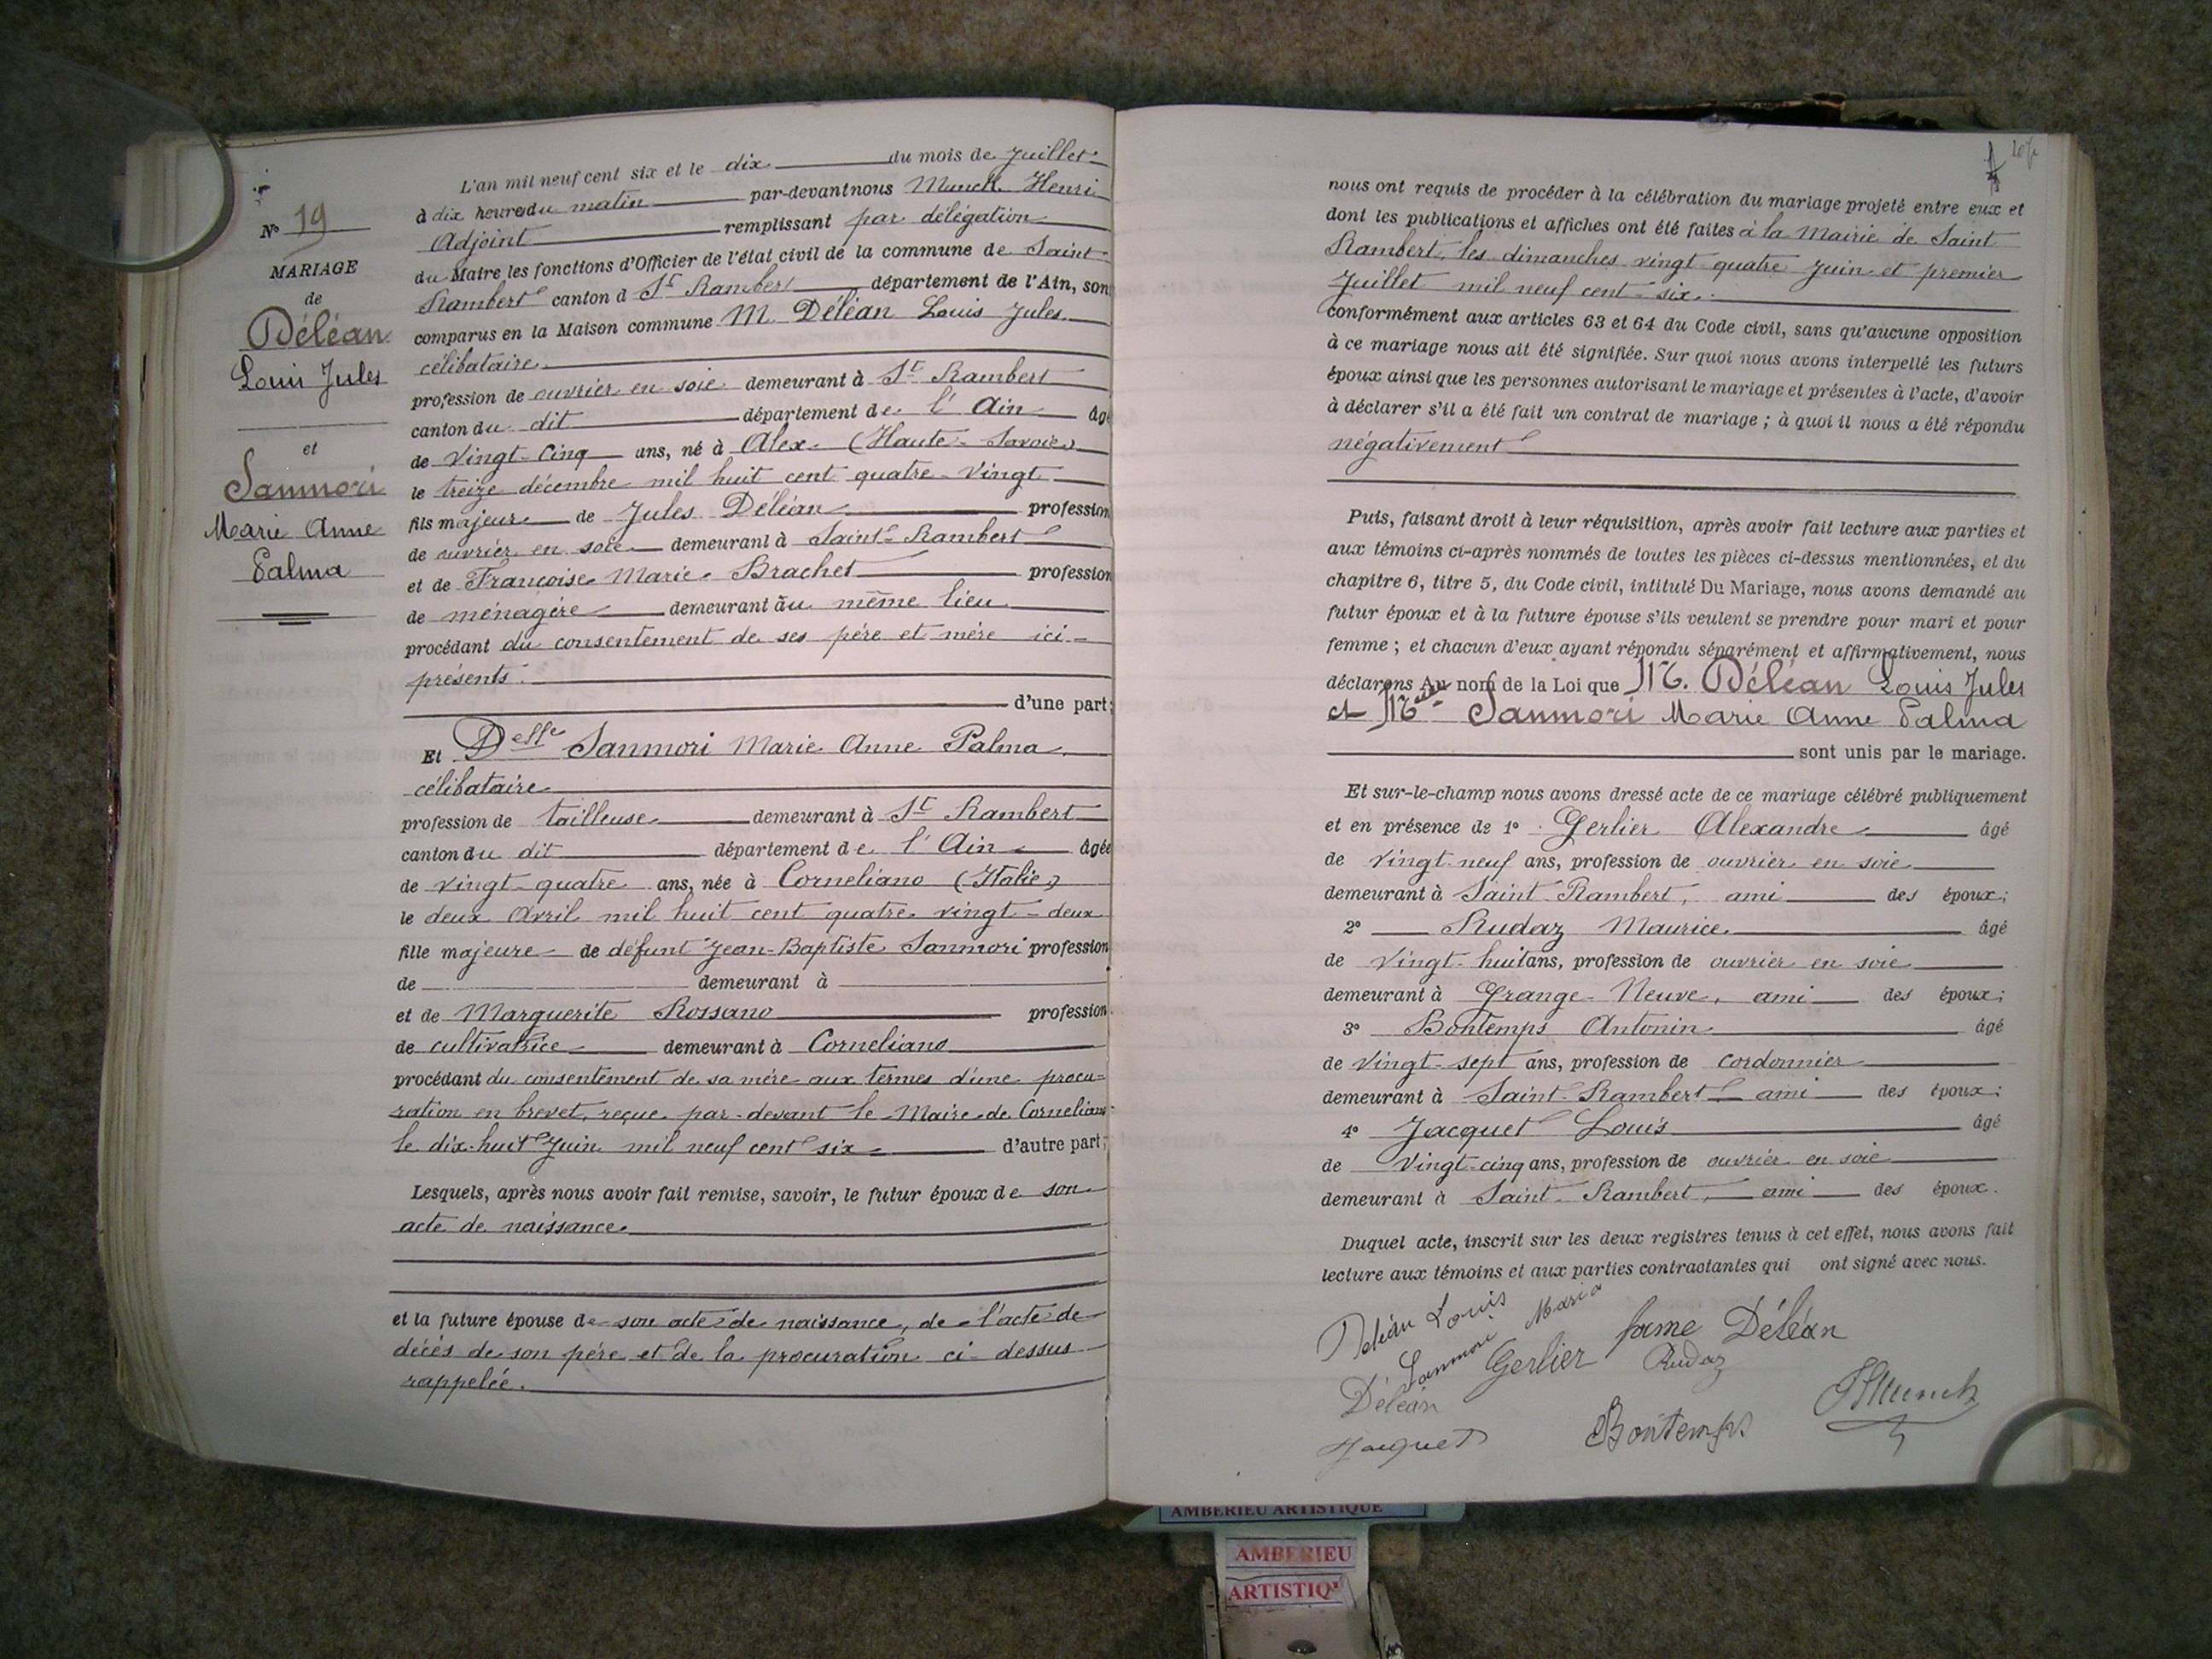 N° 19
MARIAGE
de
Déléan
Louis Jules
et
Sanmori
Marie Anne
Palma
L'an mil neuf cent six et le dix du mois de Juillet
à dix heures du matin par-devant nous Munck Henri
Adjoint remplissant par délégation
du Maire les fonctions d'Officier de l'état civil de la commune de Saint
Rambert canton d St Rambert département de l'Ain, son
comparus en la Maison commune M. Déléan Louis Jules
célibataire
profession de ouvrier en soie demeurant à St Rambert
canton du dit département de l'Ain âgé
de vingt-cinq ans, né à Alex (Haute-Savoie)
le treize décembre mil huit cent quatre-vingt
fils majeur de Jules Déléan profession
de ouvrier en soie demeurant à Saint-Rambert
et de Françoise Marie Brachet profession
de ménagère demeurant au même lieu
procédant du consentement de ses père et mère ici-
présents.
d'une part;
Et Delle Sanmori Marie Anne Palma
célibataire
profession de tailleuse demeurant à St Rambert
canton du dit département de l'Ain âgée
de vingt-quatre ans, née à Corneliano (Italie)
le deux Avril mil huit cent quatre vingt-deux
fille majeure de défunt Jean-Baptiste Sanmori profession
de demeurant à
et de Marguerite Rossano profession
de cultivatrice demeurant à Corneliano
procédant du consentement de sa mère aux termes d'une procu=
ration en brevet, reçue par-devant le Maire de Corneliano
le dix-huit Juin mil neuf cent six d'autre part;
Lesquels, après nous avoir fait remise, savoir, le futur époux de son
acte de naissance
et la future épouse de son acte de naissance, de l'acte de
décès de son père et de la procuration ci-dessus
rappelée.
nous ont requis de procéder à la célébration du mariage projeté entre eux et
dont les publications et affiches ont été faites à la Mairie de Saint
Rambert, les dimanches vingt quatre Juin et premier
Juillet mil neuf cent six.
conformément aux articles 63 et 64 du Code civil, sans qu'aucune opposition
à ce mariage nous ait été signifiée. Sur quoi nous avons interpellé les futurs
époux ainsi que les personnes autorisant le mariage et présentes à l'acte, d'avoir
à déclarer s'il a été fait un contrat de mariage ; à quoi il nous a été répondu
négativement
Puis, faisant droit à leur réquisition, après avoir fait lecture aux parties et
aux témoins ci-après nommés de toutes les pièces ci-dessus mentionnées, et du
chapitre 6, titre 5, du Code civil, intitulé Du Mariage, nous avons demandé au
futur époux et à la future épouse s'ils veulent se prendre pour mari et pour
femme ; et chacun d'eux ayant répondu séparément et affirmativement, nous
déclarons Au nom de la Loi que M. Déléan Louis Jules
et Melle Sanmori Marie Anne Palma
sont unis par le mariage.
Et sur-le-champ nous avons dressé acte de ce mariage célébré publiquement
et en présence de 1° Gerlier Alexandre âgé
de vingt-neuf ans, profession de ouvrier en soie
demeurant à Saint-Rambert, ami des époux;
2° Rudaz Maurice âgé
de vingt-huit ans, profession de ouvrier en soie
demeurant à Grange-Neuve, ami des époux;
3° Bontemps Antonin âgé
de vingt-sept ans, profession de cordonnier
demeurant à Saint-Rambert ami des époux;
4° Jacquet Louis âgé
de vingt-cinq ans, profession de ouvrier en soie
demeurant à Saint-Rambert, ami des époux.
Duquel acte, inscrit sur les deux registres tenus à cet effet, nous avons fait
lecture aux témoins et aux parties contractantes qui ont signé avec nous.
Deléan Louis
Sanmori Maria
fame Déléan
Gerlier
Rudaz
Déléan
Jacquet
Bontemps
HMunck
AMBERIEU ARTISTIQUE
AMBERIEU
ARTISTIQ